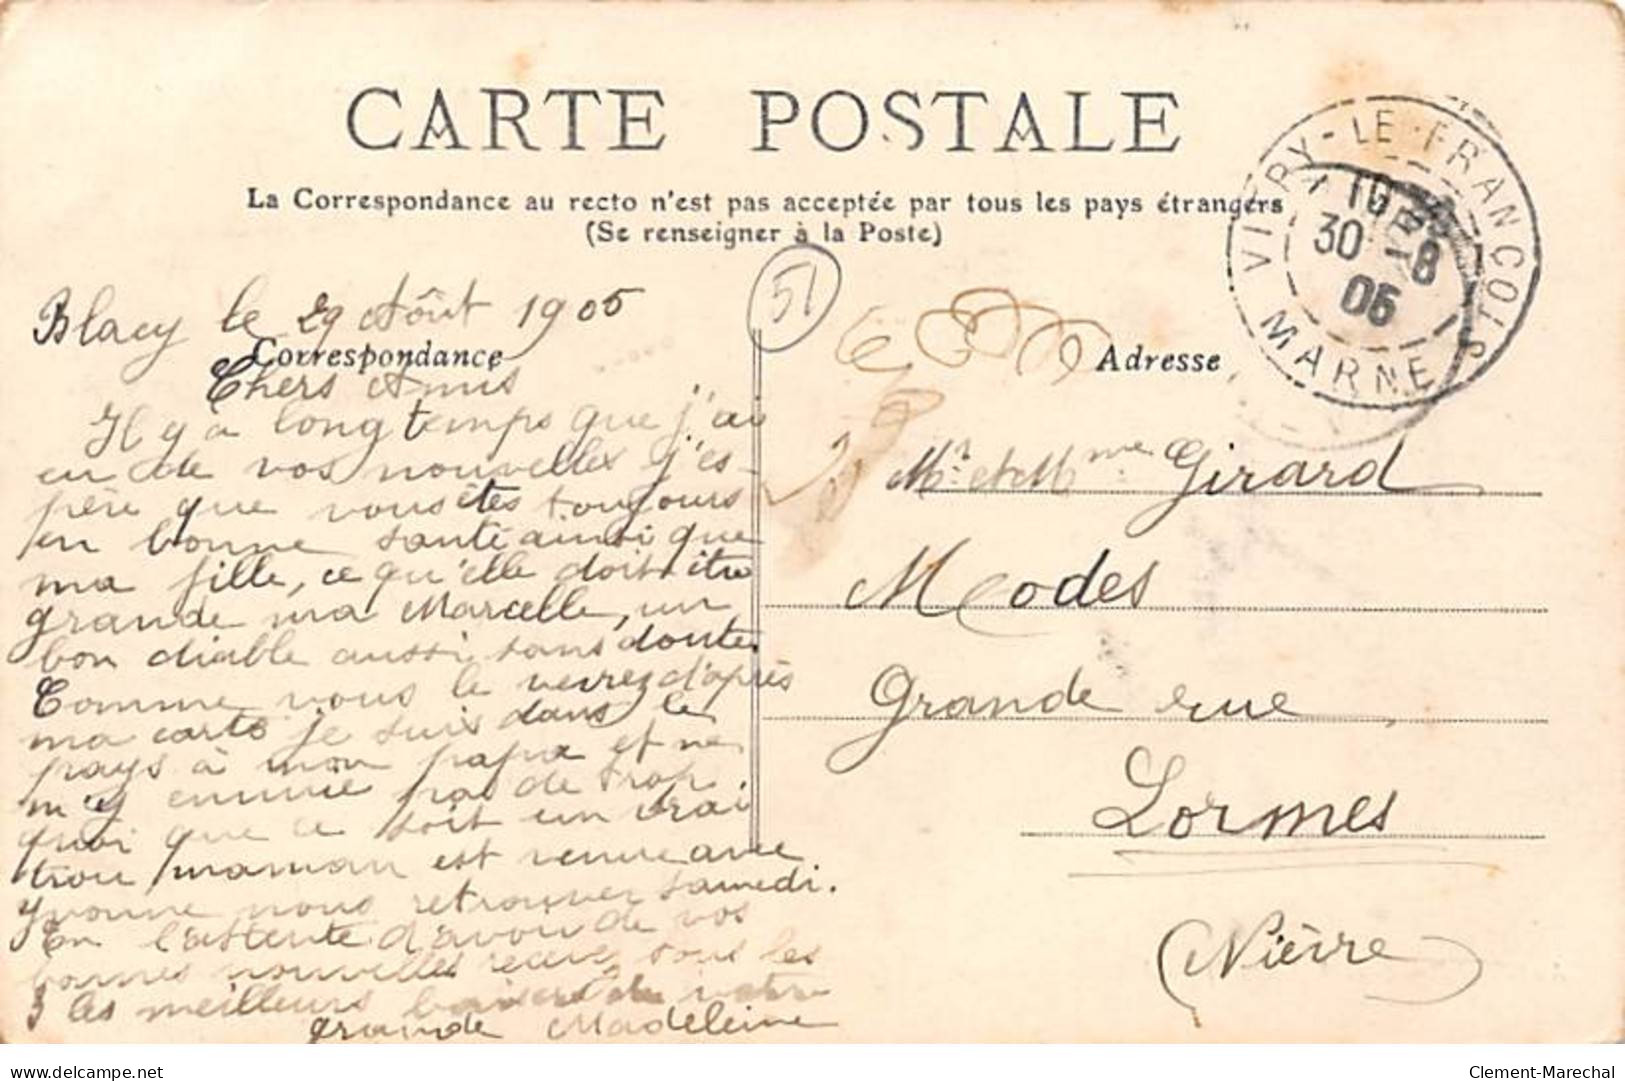 CARTE POSTALE
La Correspondance au recto n'est pas acceptée par tous les pays étrangers
(Se renseigner à la Poste)
VITRY-LE-FRANÇOIS
MARNE
30 -8
05
51
Blacy le 29 Août 1905
Correspondance
Chers Amis
Il y a longtemps que j'ai
eu de vos nouvelles j'es-
père que vous êtes toujours
en bonne santé ainsi que
ma fille, ce qu'elle doit être
grande ma Marcelle, un
bon diable aussi sans doute.
Comme vous le verrez d'après
ma carte je suis dans le
pays à mon papa et ne
m'y ennuie pas de trop
quoi que ce soit un vrai
trou, maman est venue avec
Yvonne nous retrouver samedi.
En l'attente d'avoir de vos
bonnes nouvelles recevez tous les
3 les meilleurs baisers de votre
grande Madeleine
Adresse
Mr et Mme Girard
Modes
Grande rue,
Lormes
(Nièvre)
delcampe.net
Clement-Marechal